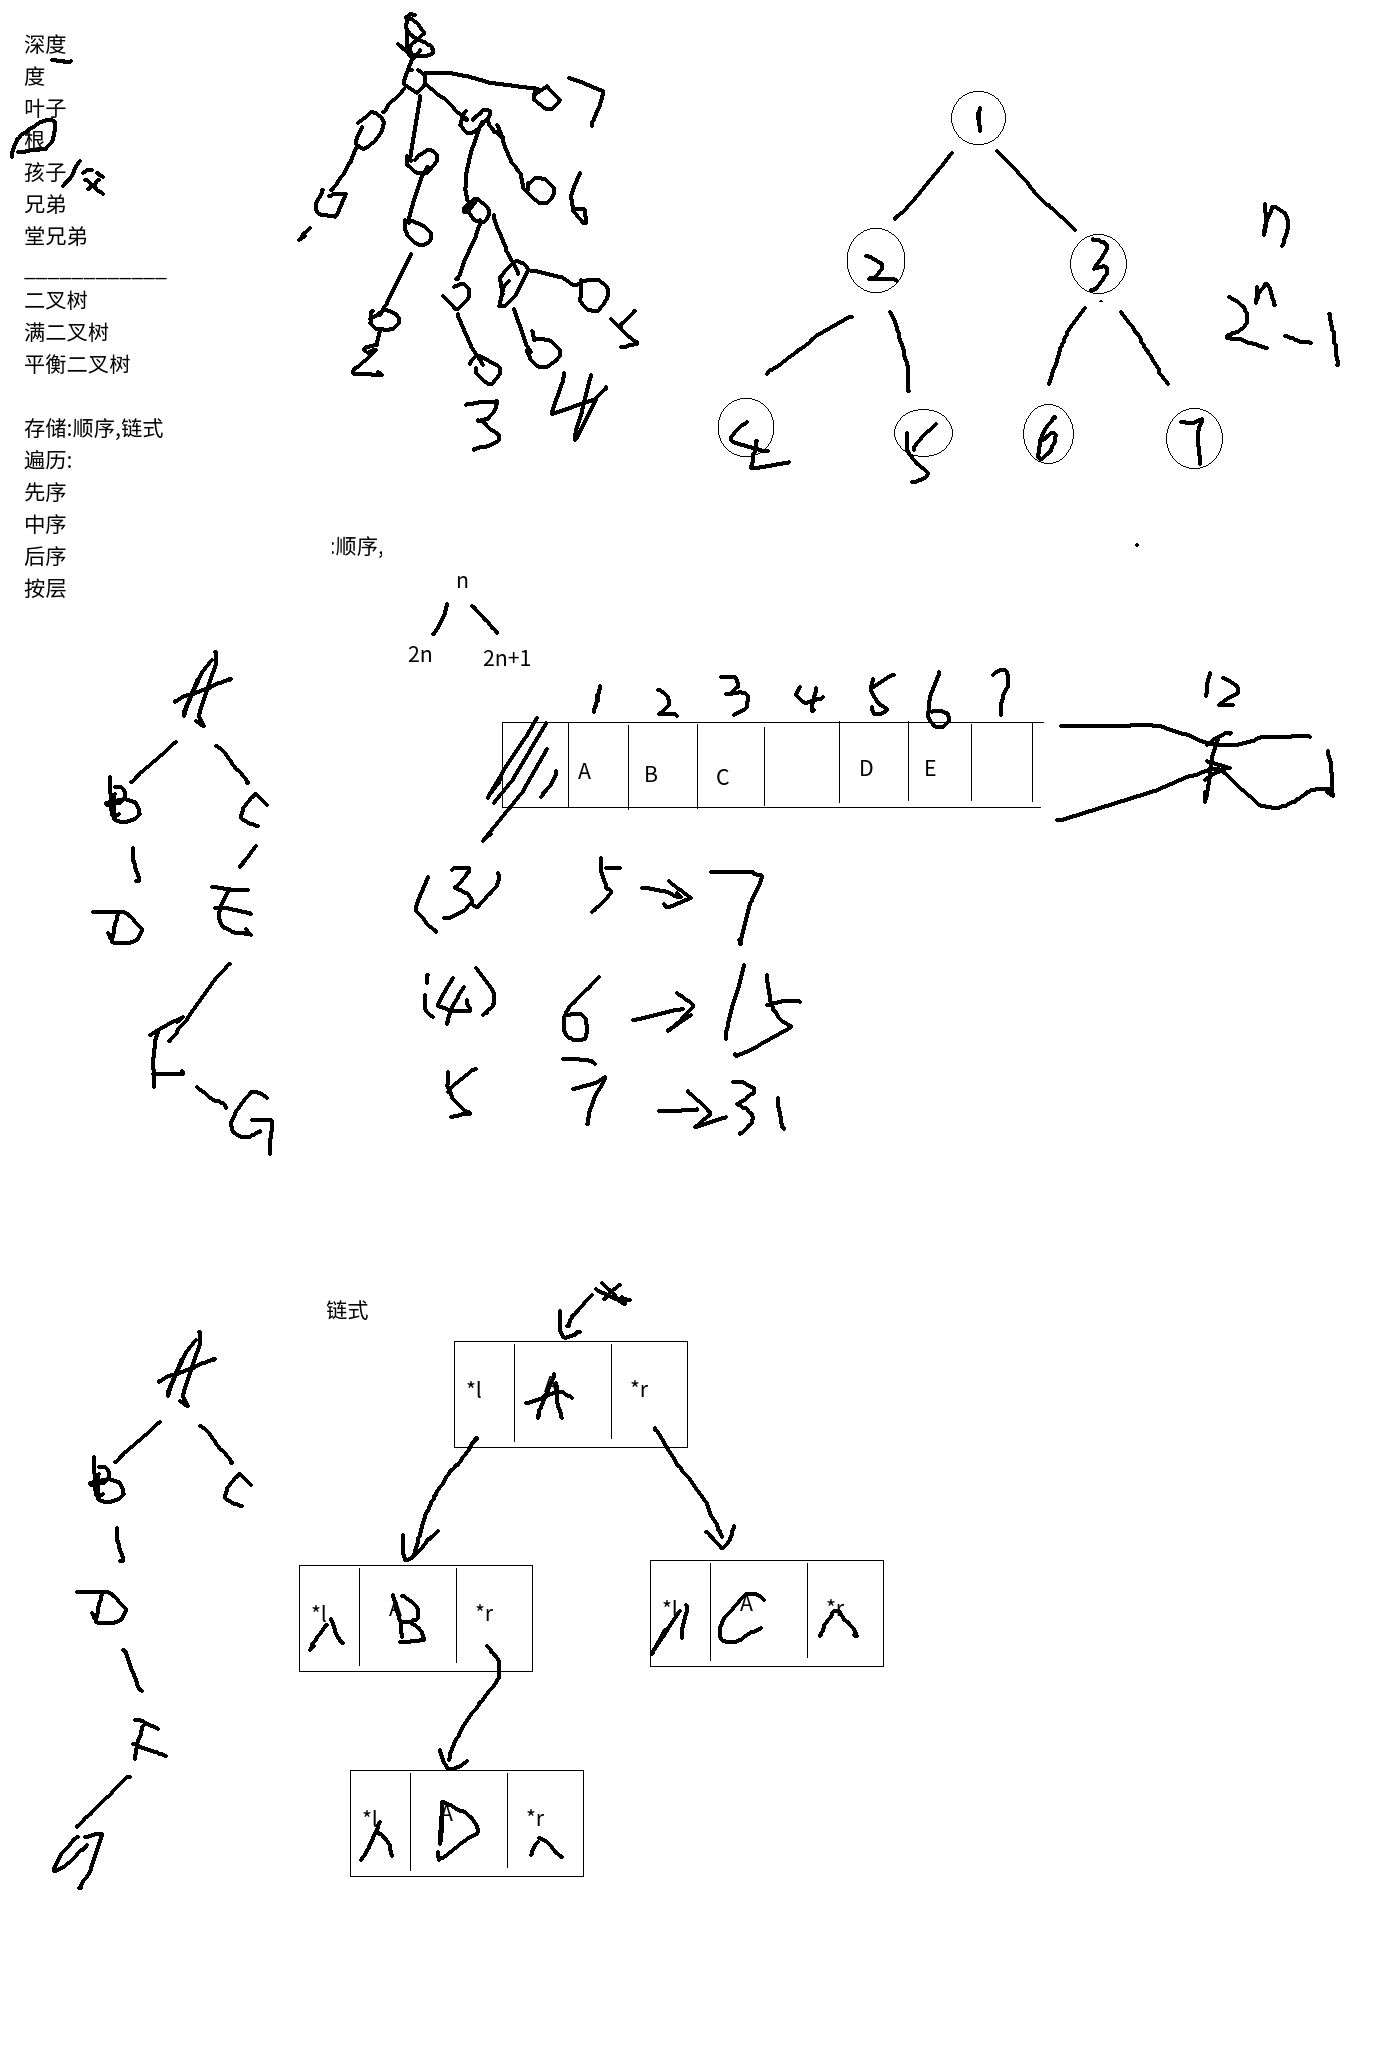 深度
度
叶子
根
孩子/父
兄弟
堂兄弟
_____________
二叉树
满二叉树
平衡二叉树
存储:顺序,链式
遍历:
先序
中序
后序
按层
7
6
5
2
3
4
1
2
3
4
5
6
7
n
2^n-1
:顺序,
n
2n
2n+1
A
B
C
D
E
F
G
1 2 3 4 5 6 7 12
A B C D E F
(3) 5 → 7
(4) 6 → 15
5 7 → 31
链式
A
B
C
D
F
*l A *r
*l B *r
*l A C *r
*l A D *r